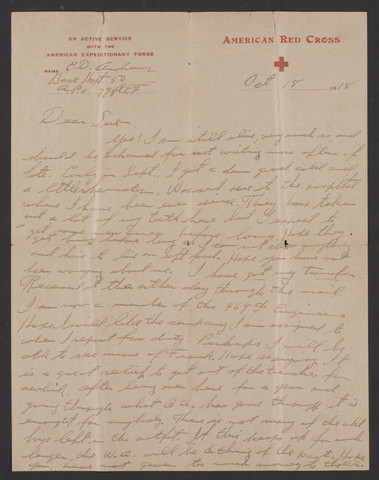 ON ACTIVE SERVICE
WITH THE
AMERICAN EXPEDITIONARY FORCE
AMERICAN RED CROSS
NAME E.D. Andrews
Base Hospt 50
A.P.O. 798 A.E.F.
Oct 18 1918
Dear Sue:
Yes! I am still alive, very much so, and
should be ashamed for not writing more often of
late. Early in Sept. I got a damn good cold and
a little rheumatism. Was sent here to the hospital
where I have been ever since. They have taken
out a lot of my teeth here but I expect to
get some new ones before long. Hope they
get busy before long as I can not chew anything
and have to live on soft food. Hope you have not
been worrying about me. I have got my transfer.
Received it the other day through the mail
I am now a member of the 469th Engineers
Hope I will like the company I am assigned to
when I report for duty. Perhaps I will be
able to see more of Frank. Hope so anyway. It
is a great relief to get out of the trenches for
awhile, after being over here for a year and
going through what Co. has gone through it is
enough for anybody. There is not many of the old
boys left in the outfit. If this keeps up for much
longer the will be a thing of the past. Hope
you have not given too much money to the